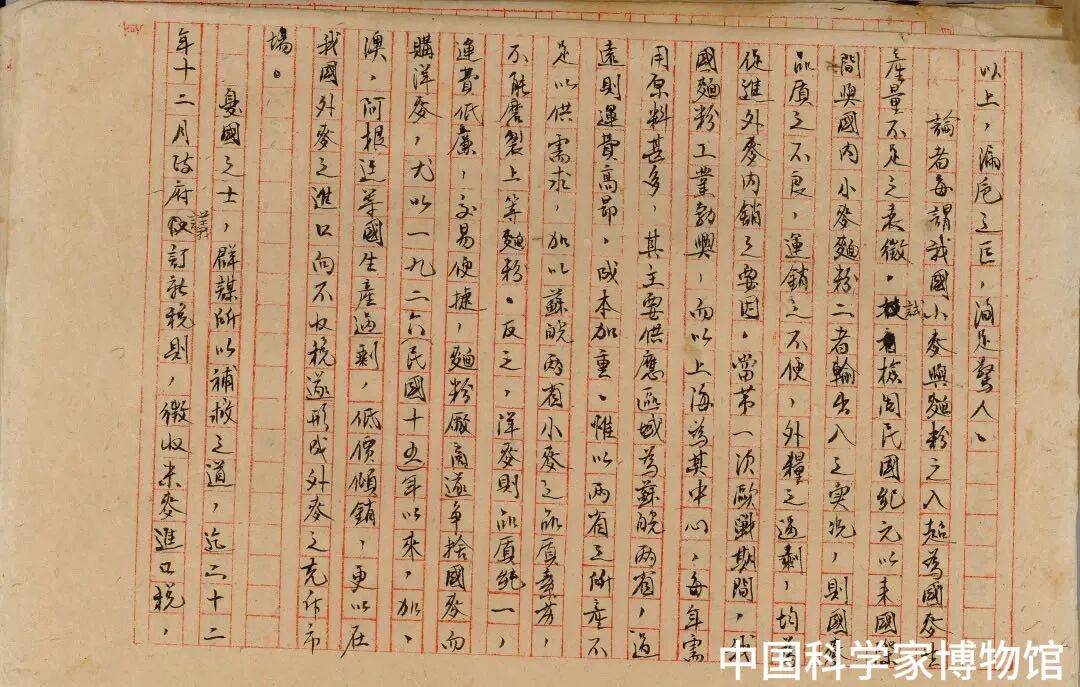 以上，漏卮之巨，洵足驚人。
論者每謂我國小麥與麵粉之入超為國麥生
產量不足之表徵。試檢閱民國紀元以來國際
間與國內小麥麵粉二者輸出入之實況，則國麥
品质之不良，運銷之不便，外糧之過剩，均為
促進外麥内銷之要因。當第一次歐戰期間，我
國麵粉工業勃興，而以上海為其中心，每年需
用原料甚多，其主要供應區域為蘇皖兩省，過
遠則運費高昂，成本加重。惟以两省之所產不
足以供需求，加以蘇皖兩省小麥之品质
不能磨製上等麵粉。反之，洋麥則品质純一，
運費低廉，交易便捷，麵粉廠商遂争捨國麥而
購洋麥，尤以一九二六民國十五年以來，加、
澳、阿根廷等國生產過剩，低價傾銷，更以在
我國外麥之進口向不收稅遂形成外麥之充斥市
場。
憂國之士，群謀所以補救之道，迄二十二
年十二月政府議訂新稅則，徵收米麥進口稅，
中国科学家博物馆